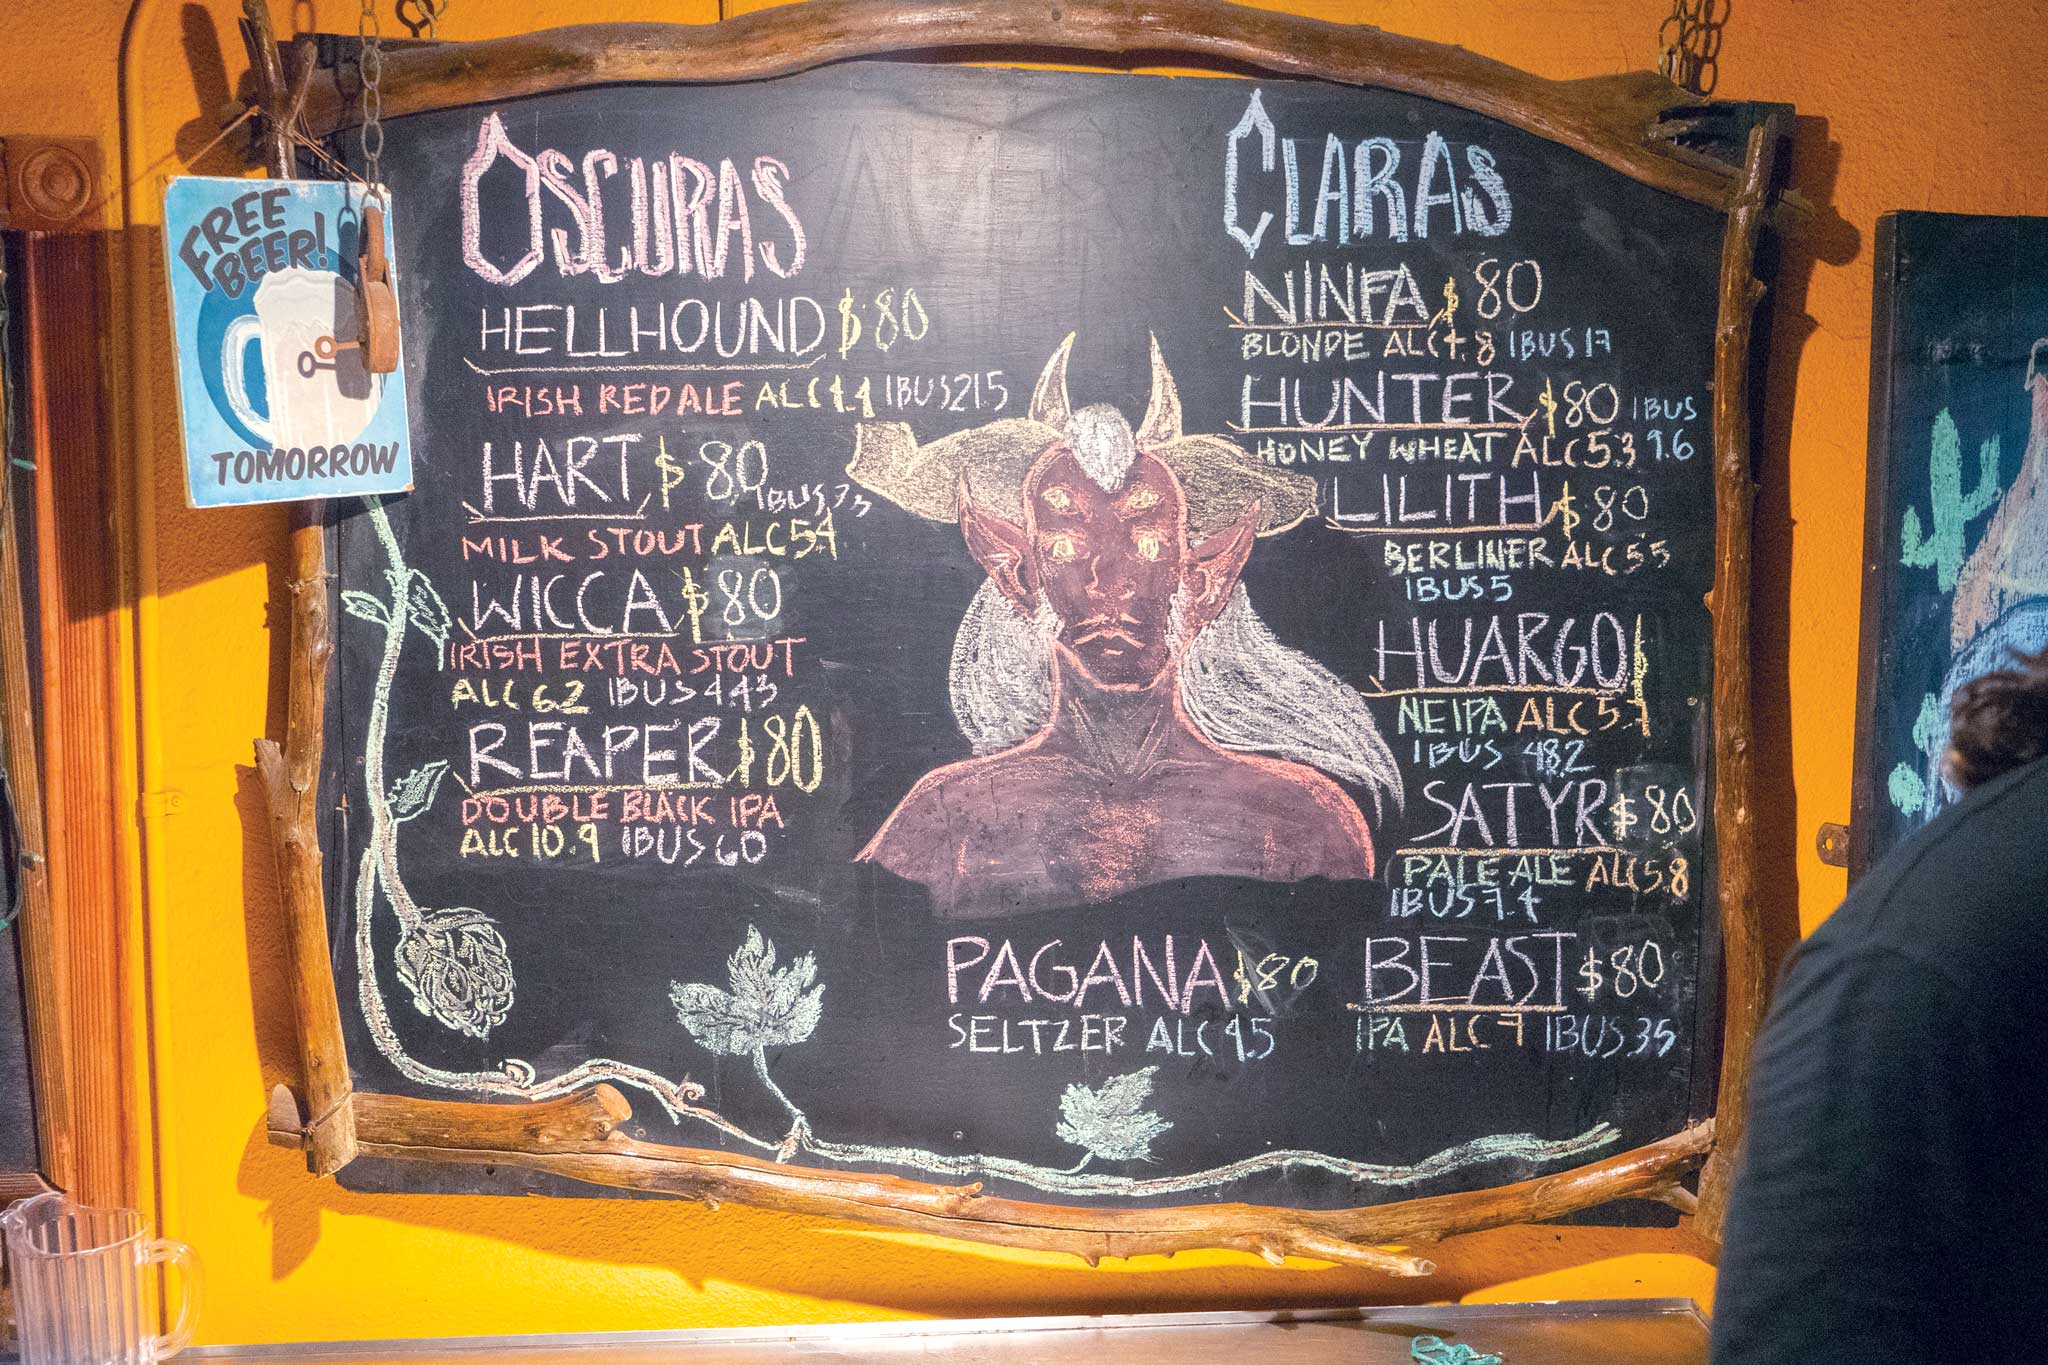 FREE
BEER!
TOMORROW
OSCURAS
HELLHOUND $80
IRISH RED ALE ALC 4.4 IBUS 21.5
HART $80
IBUS 23
MILK STOUT ALC 5.4
WICCA $80
IRISH EXTRA STOUT
ALC 6.2 IBUS 44.3
REAPER $80
DOUBLE BLACK IPA
ALC 10.9 IBUS 60
CLARAS
NINFA $80
BLONDE ALC 4.8 IBUS 17
HUNTER $80 IBUS
HONEY WHEAT ALC 5.3 9.6
LILITH $80
BERLINER ALC 5.5
IBUS 5
HUARGO
NEIPA ALC
IBUS 48.2
SATYR $80
PALE ALE ALC 5.8
IBUS 7.4
PAGANA $80
SELTZER ALC 4.5
BEAST $80
IPA ALC 7 IBUS 35